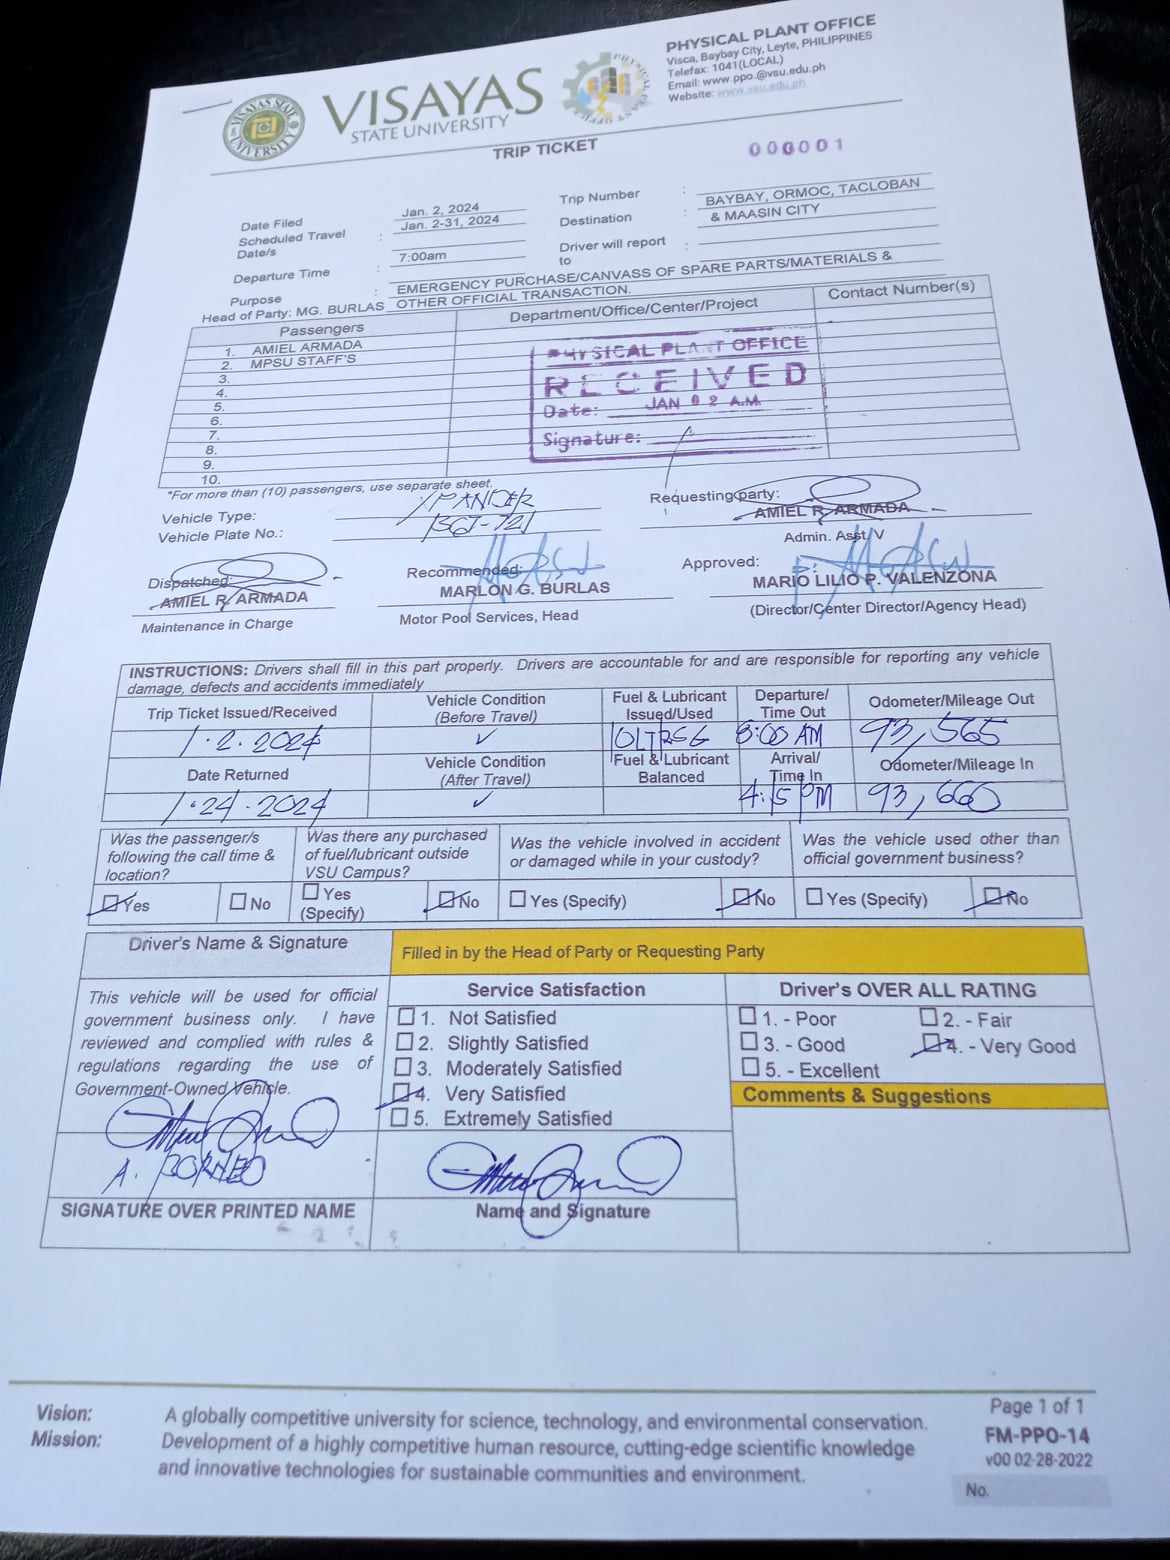 VISAYAS
STATE UNIVERSITY
PHYSICAL PLANT OFFICE
Visca, Baybay City, Leyte, PHILIPPINES
Telefax: 1041(LOCAL)
Email: www.ppo.@vsu.edu.ph
Website: www.vsu.edu.ph
TRIP TICKET
000001
Date Filed Jan. 2, 2024
Scheduled Travel Date/s : Jan. 2-31, 2024
Departure Time : 7:00am
Trip Number :
Destination : BAYBAY, ORMOC, TACLOBAN
& MAASIN CITY
Driver will report to :
Purpose : EMERGENCY PURCHASE/CANVASS OF SPARE PARTS/MATERIALS &
Head of Party: MG. BURLAS OTHER OFFICIAL TRANSACTION.
Passengers Department/Office/Center/Project Contact Number(s)
1. AMIEL ARMADA
2. MPSU STAFF'S
3.
4.
5.
6.
7.
8.
9.
10.
PHYSICAL PLANT OFFICE
RECEIVED
Date: JAN 02 A.M.
Signature:
*For more than (10) passengers, use separate sheet.
Vehicle Type:
Vehicle Plate No.: SGJ-721
Requesting party:
AMIEL R. ARMADA
Admin. Asst. V
Dispatched:
AMIEL R. ARMADA
Maintenance in Charge
Recommended:
MARLON G. BURLAS
Motor Pool Services, Head
Approved:
MARIO LILIO P. VALENZONA
(Director/Center Director/Agency Head)
INSTRUCTIONS: Drivers shall fill in this part properly. Drivers are accountable for and are responsible for reporting any vehicle
damage, defects and accidents immediately
Trip Ticket Issued/Received Vehicle Condition (Before Travel) Fuel & Lubricant Issued/Used Departure/ Time Out Odometer/Mileage Out
1.2.2024 ✓ 8:00 AM 93,565
Date Returned Vehicle Condition (After Travel) Fuel & Lubricant Balanced Arrival/ Time In Odometer/Mileage In
1.24.2024 ✓ 4:15 PM 93,660
Was the passenger/s
following the call time &
location?
Was there any purchased
of fuel/lubricant outside
VSU Campus?
Was the vehicle involved in accident
or damaged while in your custody?
Was the vehicle used other than
official government business?
Yes No Yes (Specify) No Yes (Specify) No Yes (Specify) No
Driver's Name & Signature
Filled in by the Head of Party or Requesting Party
This vehicle will be used for official
government business only. I have
reviewed and complied with rules &
regulations regarding the use of
Government-Owned Vehicle.
A. BORNEO
SIGNATURE OVER PRINTED NAME
Service Satisfaction
1. Not Satisfied
2. Slightly Satisfied
3. Moderately Satisfied
4. Very Satisfied
5. Extremely Satisfied
Name and Signature
Driver's OVER ALL RATING
1. - Poor 2. - Fair
3. - Good 4. - Very Good
5. - Excellent
Comments & Suggestions
Vision: A globally competitive university for science, technology, and environmental conservation.
Mission: Development of a highly competitive human resource, cutting-edge scientific knowledge
and innovative technologies for sustainable communities and environment.
Page 1 of 1
FM-PPO-14
v00 02-28-2022
No.